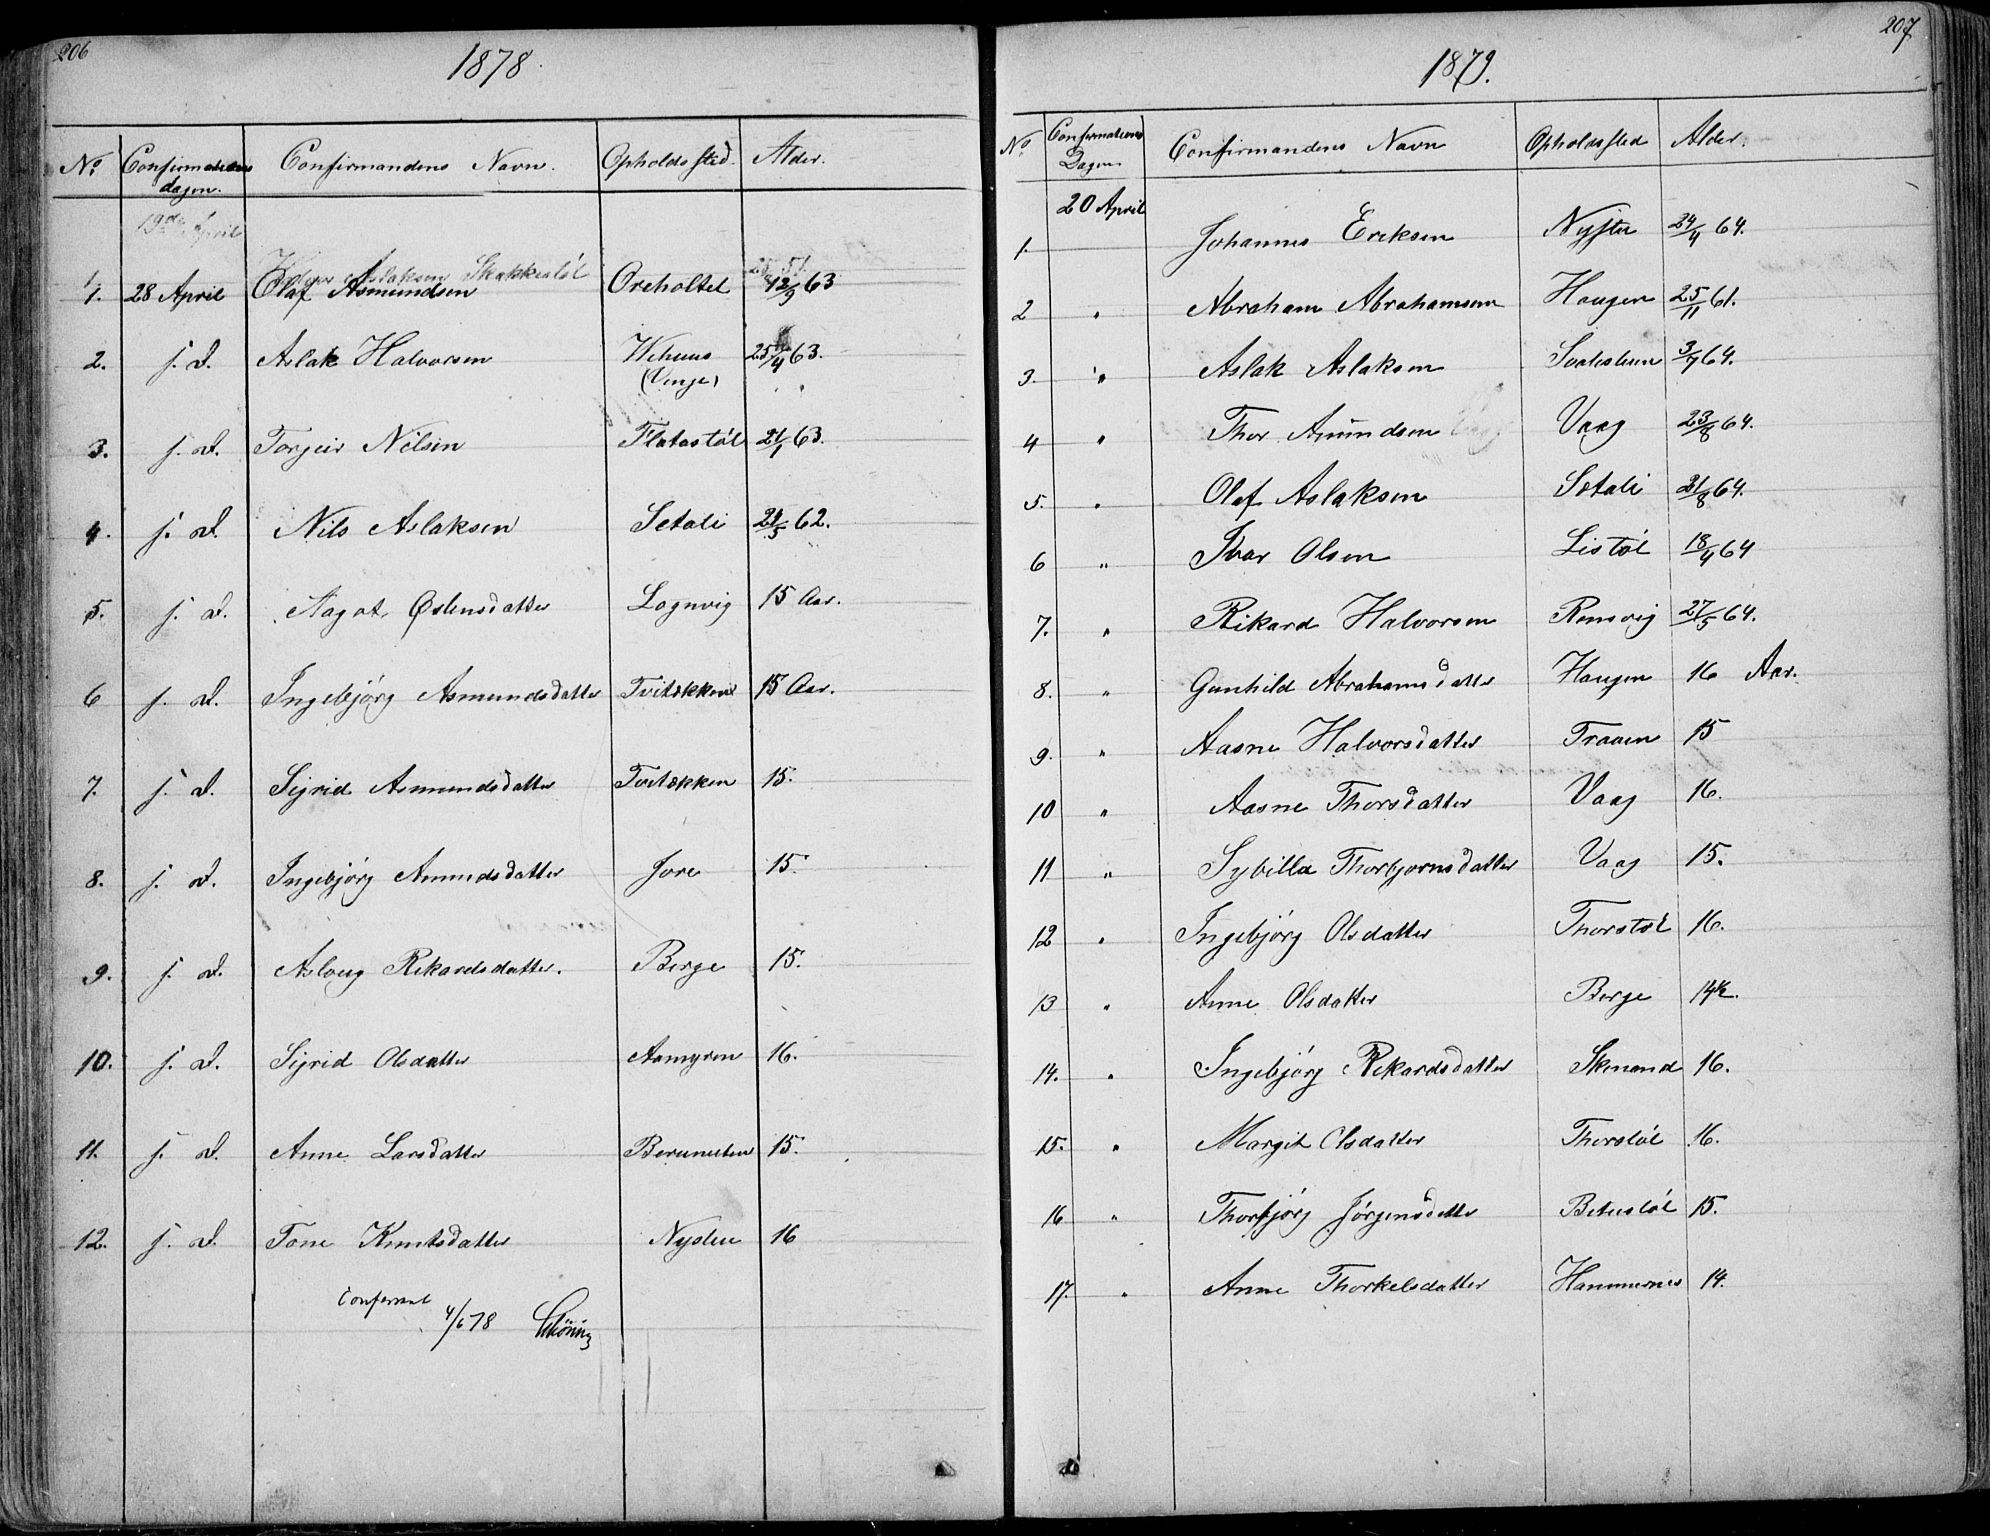 206
1878.
No Confirmations dagen. Confirmandens Navn. Opholdssted. Alder.
19de April
1. 28 April Olaf Asmundsen Oreholtet 12/9 63
2. s. D. Aslak Halvorsen Wehuus 25/4 63.
(Vinje)
3. s. D. Torgeir Nilsen Flatastøl 21/1 63.
4. s. D. Nils Aslaksen Setali 24/5 62.
5. s. D. Aagot Østensdatter Lognvig 15 Aar.
6 s. D. Ingebjörg Asmundsdatter Tvitækken 15 Aar.
7. s. D. Sigrid Asmundsdatter Tvitækken 15.
8. s. D. Ingebjörg Amundsdatter Jore 15.
9. s. D. Aslaug Rikardsdatter. Berge 15.
10. s. D. Sigrid Olsdatter Aamyren 16.
11. s. D. Anne Larsdatter 15.
12. s. D. Tone Knutsdatter Nystu 16
Conferert
4/6 78
207
1879.
No Confirmations Dagen Confirmandens Navn Opholdssted Alder.
20 April
1. Johannes Eriksen 24/4 64.
2 " Abraham Abrahamsen Haugen 25/11 61.
3. " Aslak Aslaksen 3/7 64.
4 " Thor Amundsen Vaag 23/8 64.
5. " Olaf Aslaksen Setali 21/8 64.
6 " Ivar Olsen Listøl 18/4 64
7. " Rikard Halvorsen Romsvig 27/5 64.
8. " Gunhild Abrahamsdatter Haugen 16 Aar.
9. " Aasne Halvorsdatter Traaen 15
10 " Aasne Thorsdatter Vaag 16.
11 " Sybilla Thorbjornsdatter Vaag 15.
12 " Ingebjörg Olsdatter Thorstøl 16.
13 " Anne Olsdatter Berge 14½.
14. " Ingebjörg Rikardsdatter Skinand 16.
15. " Margit Olsdatter Thorstøl 16.
16 " Thorbjörg Jörgensdatter Bitustøl 15.
17. " Anne Thorkelsdatter Hammernes 14.